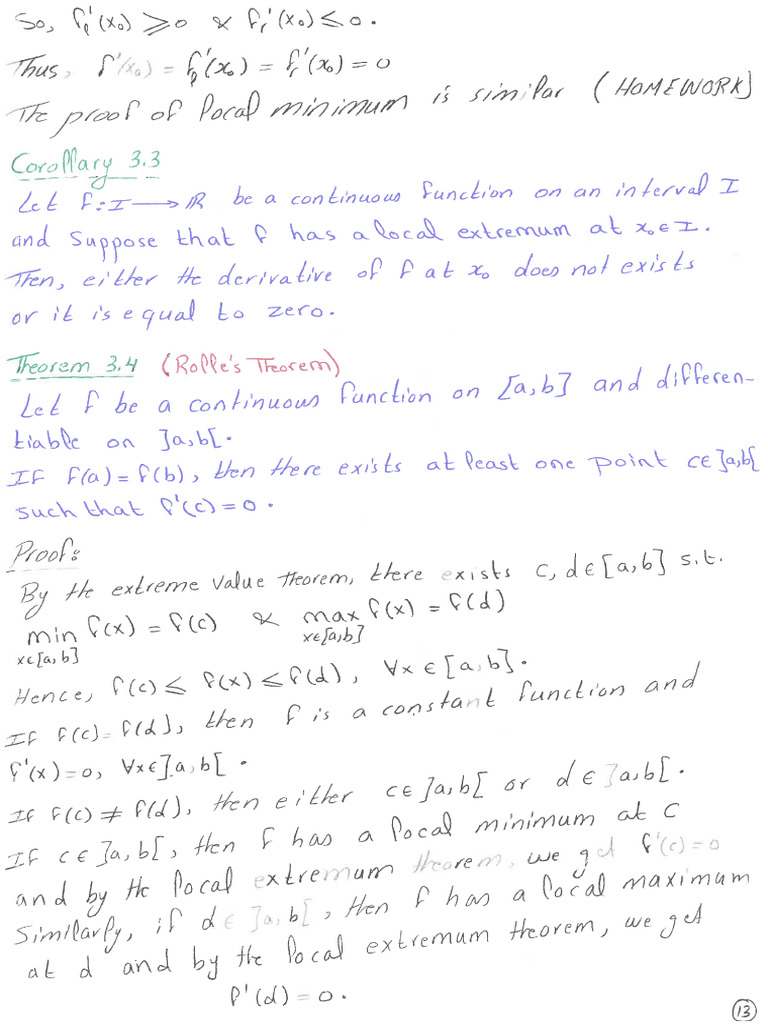 So, f'ₗ(x₀) ≥ 0 & f'ᵣ(x₀) ≤ 0.
Thus, f'(x₀) = f'ₗ(x₀) = f'ᵣ(x₀) = 0
The proof of local minimum is similar (HOMEWORK)
Corollary 3.3
Let f: I → ℝ be a continuous function on an interval I
and suppose that f has a local extremum at x₀ ∈ I.
Then, either the derivative of f at x₀ does not exists
or it is equal to zero.
Theorem 3.4 (Rolle's Theorem)
Let f be a continuous function on [a,b] and differen-
tiable on ]a,b[.
If f(a) = f(b), then there exists at least one point c∈]a,b[
such that f'(c) = 0.
Proof:
By the extreme value theorem, there exists c, d ∈ [a,b] s.t.
min f(x) = f(c) & max f(x) = f(d)
x∈[a,b] x∈[a,b]
Hence, f(c) ≤ f(x) ≤ f(d), ∀x ∈ [a,b].
If f(c) = f(d), then f is a constant function and
f'(x) = 0, ∀x∈]a,b[.
If f(c) ≠ f(d), then either c∈]a,b[ or d∈]a,b[.
If c∈]a,b[, then f has a local minimum at c
and by the local extremum theorem, we get f'(c) = 0
Similarly, if d∈]a,b[, then f has a local maximum
at d and by the local extremum theorem, we get
f'(d) = 0.
13